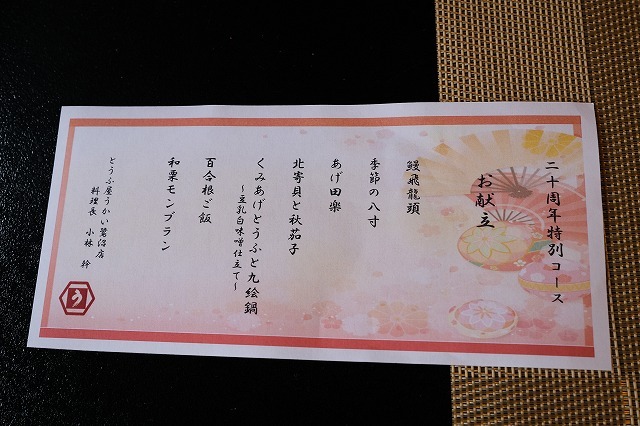 二十周年特別コース
お献立
鰻飛龍頭
季節の八寸
あげ田楽
北寄貝と秋茄子
くみあげとうふと九絵鍋
～豆乳白味噌仕立て～
百合根ご飯
和栗モンブラン
とうふ屋うかい鷺沼店
料理長 小林 幹
う